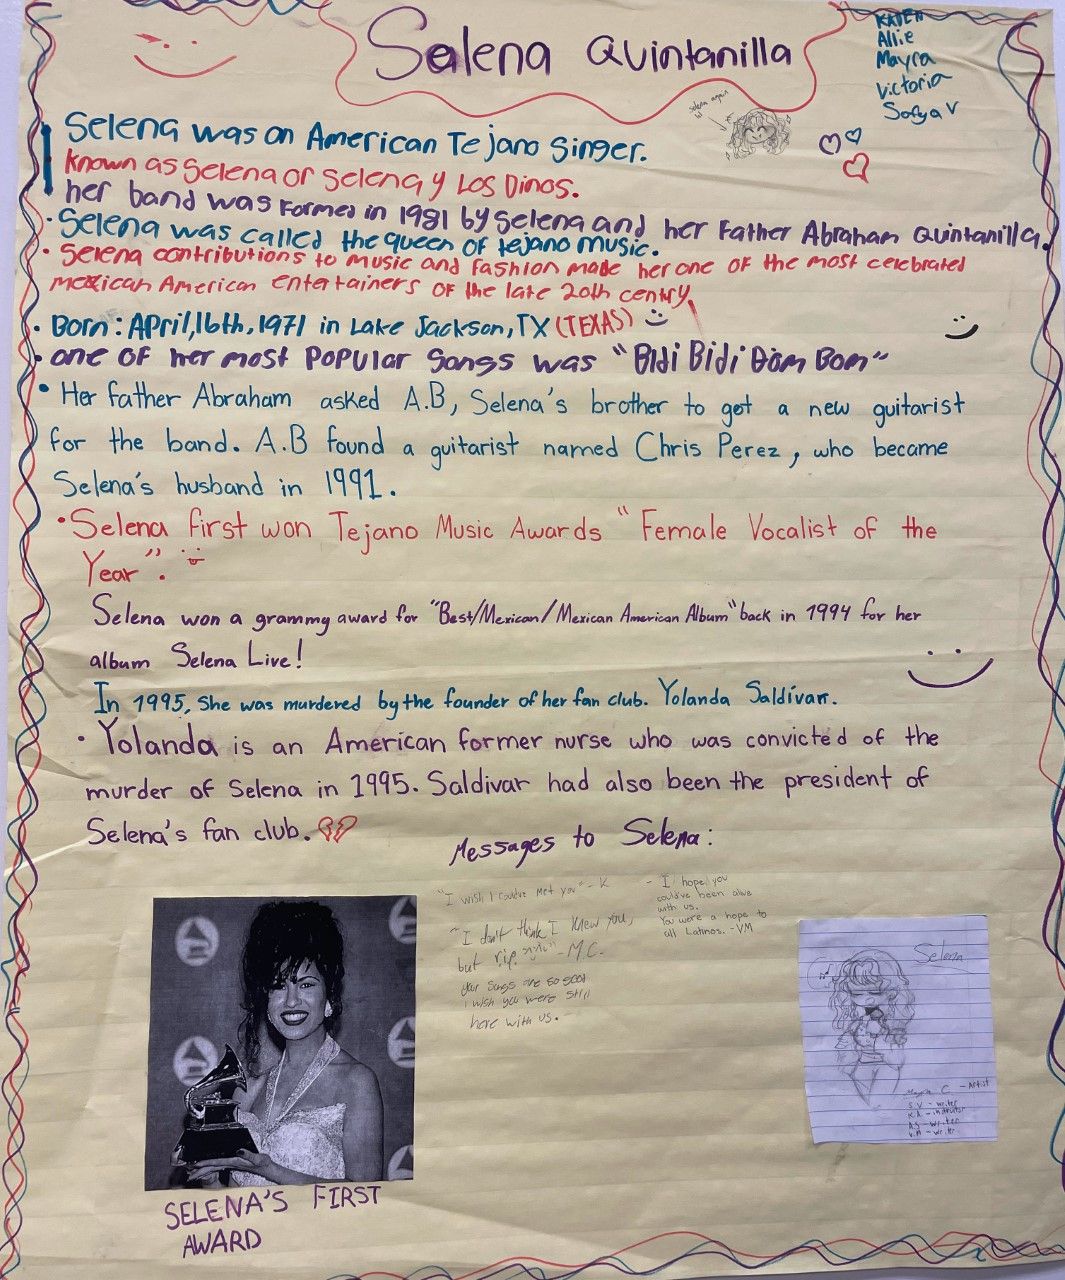 Selena Quintanilla
KADEN
Allie
Mayra
Victoria
Sofya V
selena again
Selena was an American Tejano Singer.
Known as Selena or Selena y Los Dinos.
her band was Formed in 1981 by Selena and her Father Abraham Quintanilla.
· Selena was called the queen of tejano music.
· Selena contributions to music and fashion made her one of the most celebrated
mexican American entertainers of the late 20th centry
· Born: April, 16th, 1971 in Lake Jackson, TX (TEXAS)
· one of her most Popular Songs was "Bidi Bidi Bom Bom"
· Her father Abraham asked A.B, Selena's brother to get a new guitarist
for the band. A.B found a guitarist named Chris Perez, who became
Selena's husband in 1991.
· Selena first won Tejano Music Awards "Female Vocalist of the
Year".
Selena won a grammy award for "Best/Mexican/Mexican American Album" back in 1994 for her
album Selena Live!
In 1995, She was murdered by the founder of her fan club. Yolanda Saldívar.
· Yolanda is an American former nurse who was convicted of the
murder of Selena in 1995. Saldivar had also been the president of
Selena's fan club.
Messages to Selena:
"I wish I couldve met you" - K
"I don't think I knew you,
but rip" - M.C.
your songs are so good
i wish you were still
here with us.
- I hope you
could've been alive
with us.
You were a hope to
all Latinos. -VM
Selena
Mayra C - Artist
S.V - writer
K.A - instrutor
A.S - writer
V.M - writer
SELENA'S FIRST
AWARD